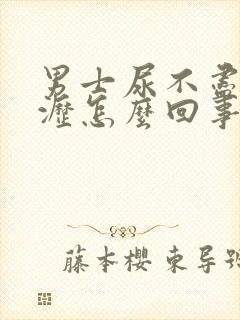 男士尿不盡
瀝怎麼回事
藤本櫻 東导